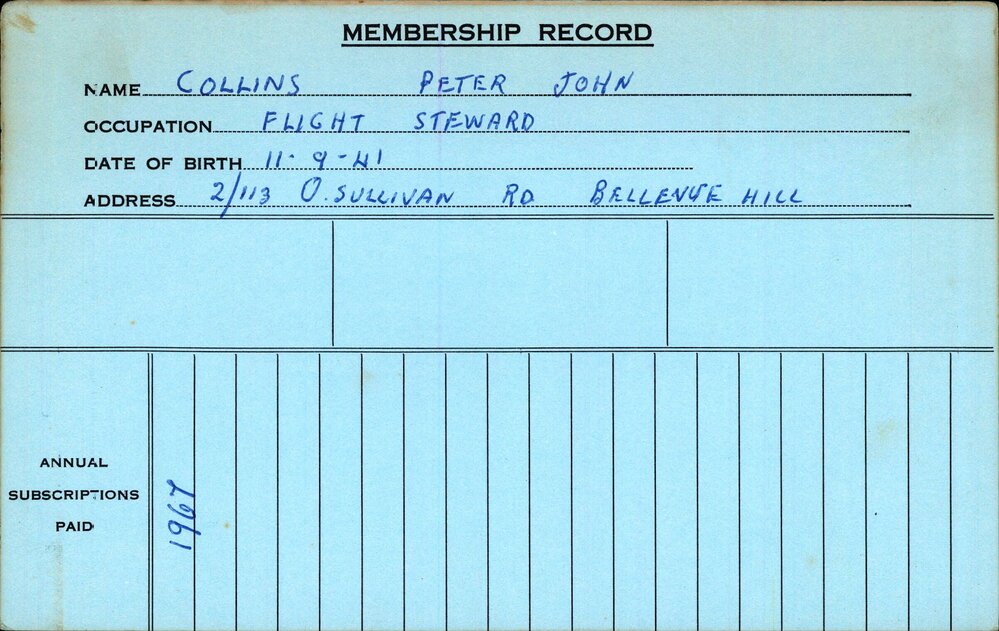 MEMBERSHIP RECORD
NAME COLLINS PETER JOHN
OCCUPATION FLIGHT STEWARD
DATE OF BIRTH 11-9-41
ADDRESS 2/113 O.SULLIVAN RD BELLEVUE HILL
ANNUAL
SUBSCRIPTIONS
PAID
1967